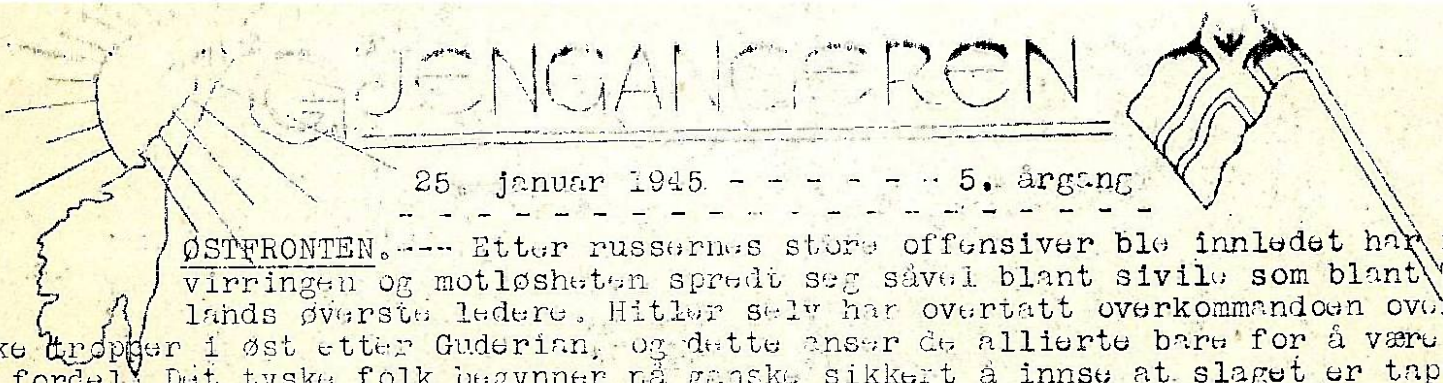 GJENGANGEREN
25. januar 1945 - - - - - - - 5. årgang
- - - - - - - - - - - - - - - - - - - - -
ØSTFRONTEN.--- Etter russernes store offensiver ble innledet har
virringen og motløsheten spredt seg såvel blant sivile som blant
lands øverste ledere. Hitler selv har overtatt overkommandoen ove
ke tropper i øst etter Guderian, og dette anser de allierte bare for å være
fordel. Det tyske folk begynner nå ganske sikkert å innse at slaget er tap